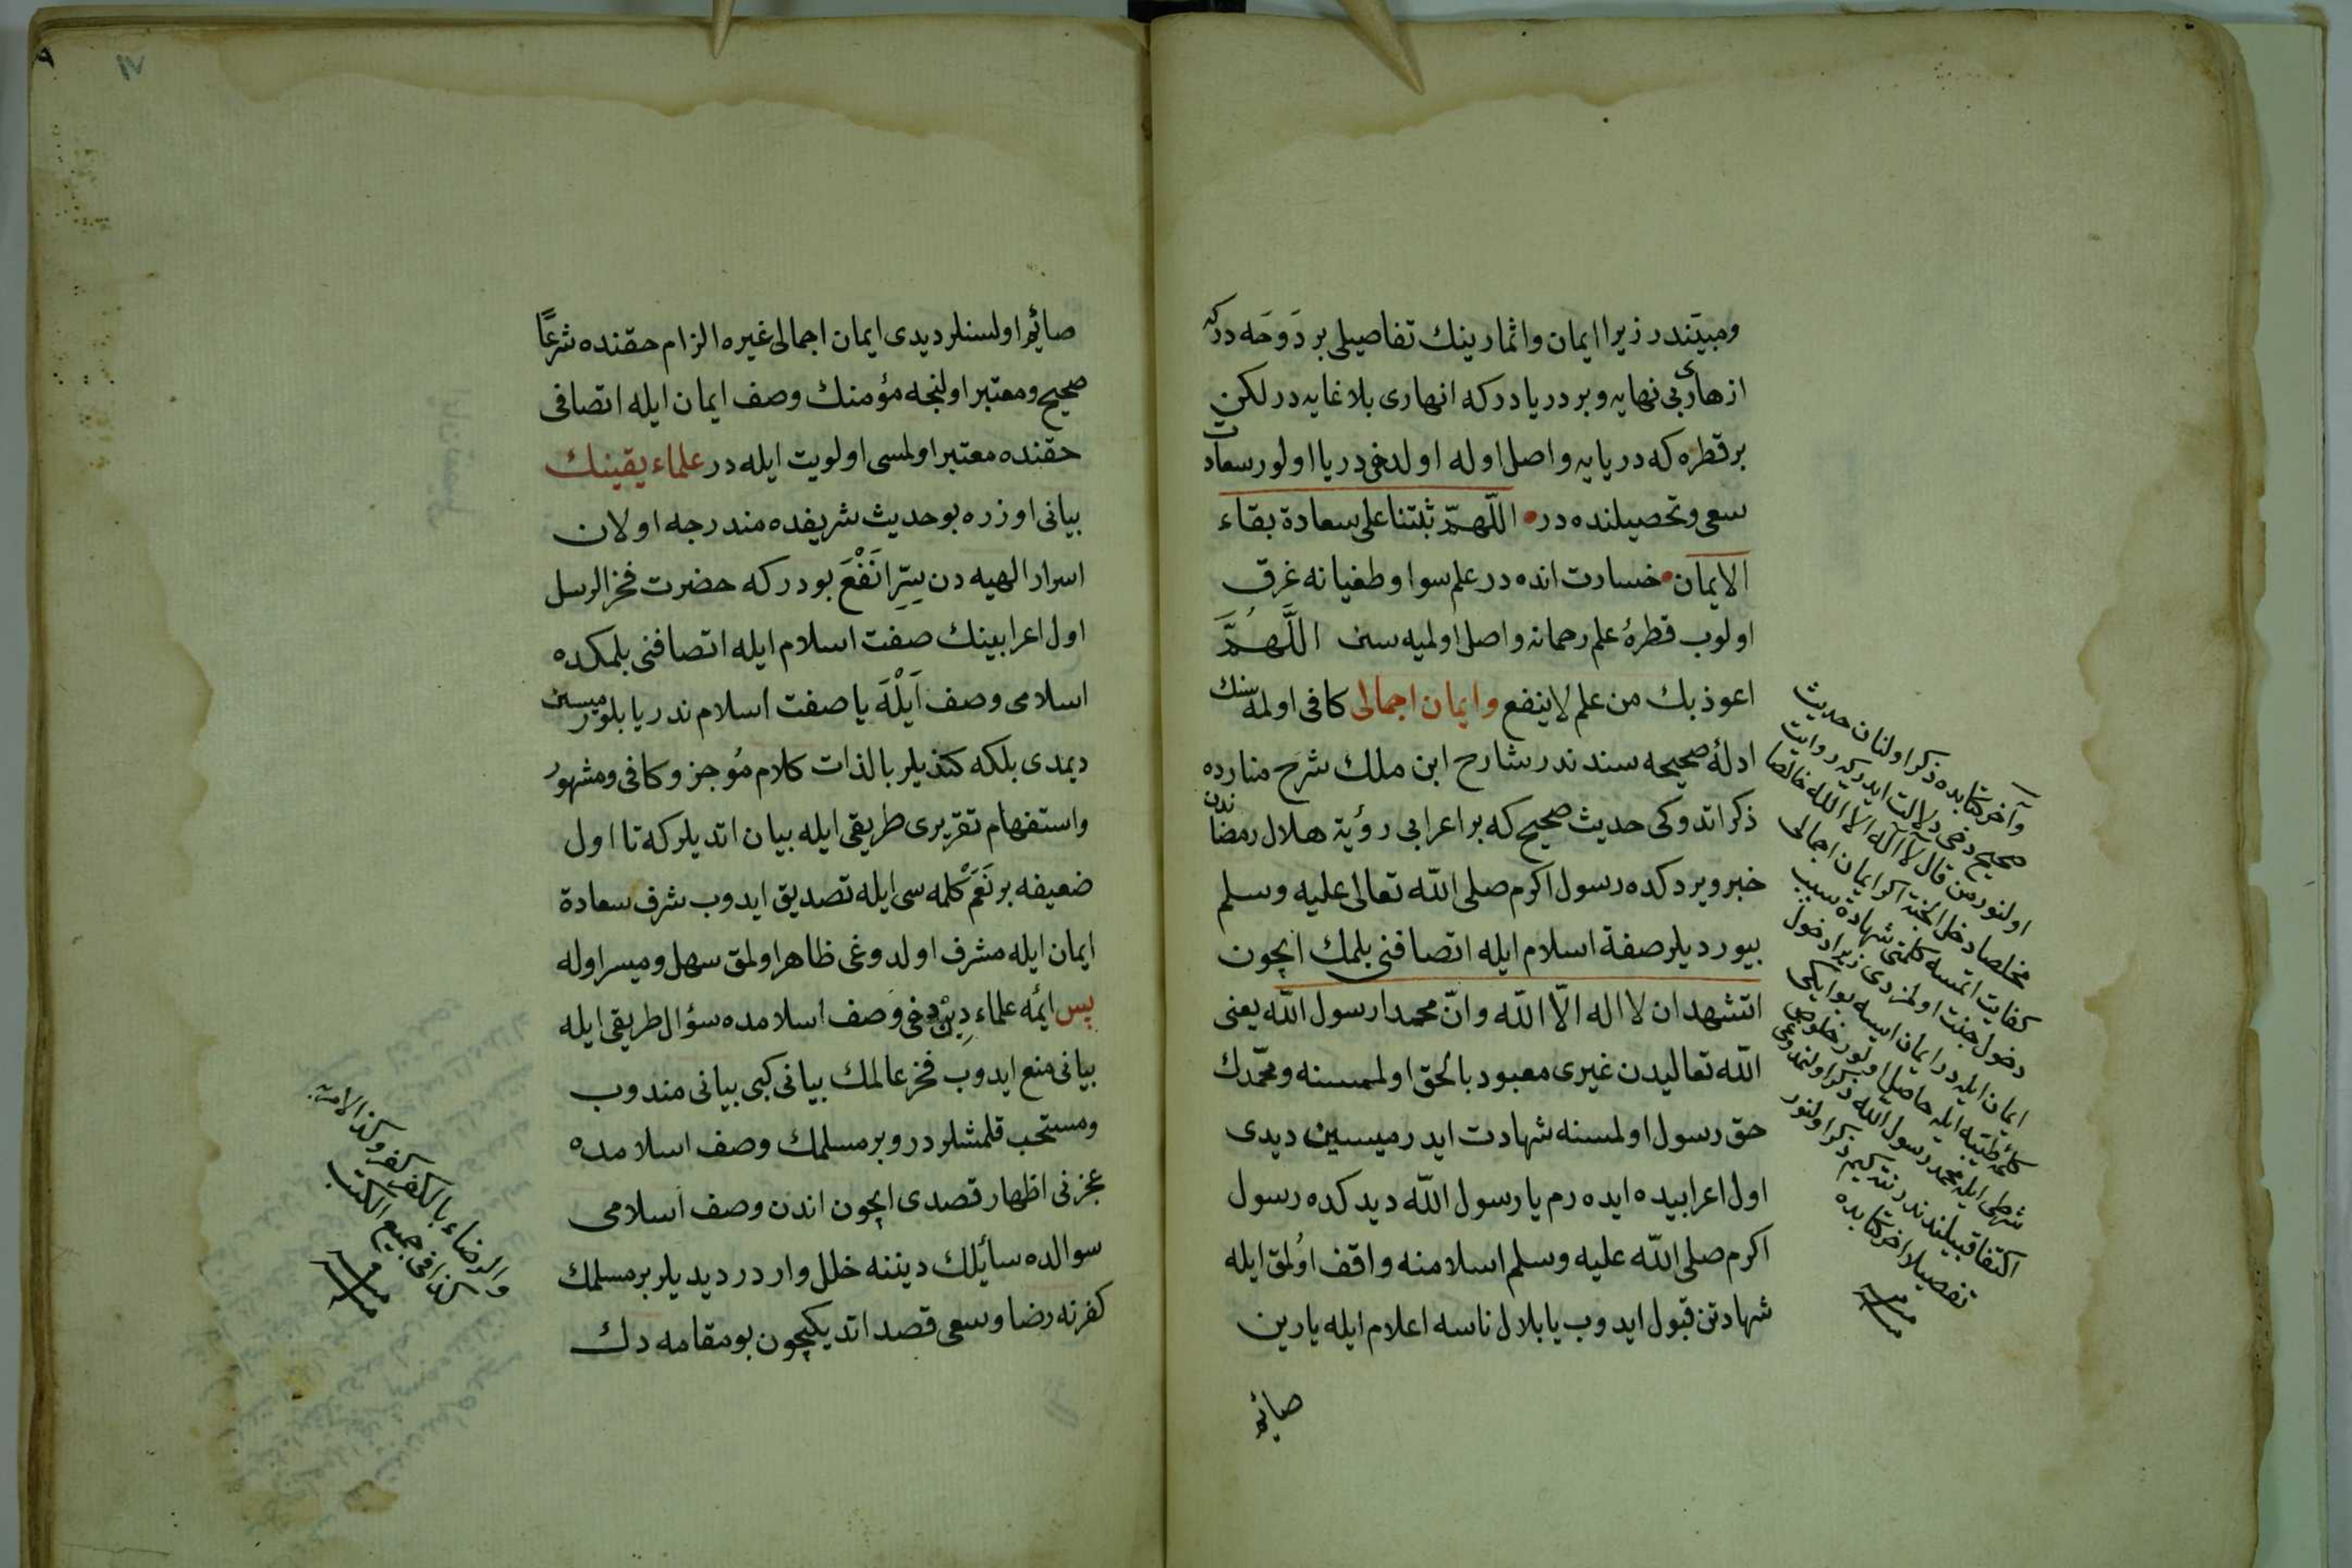 ومبیّندر زیرا ایمان واثمارینك تفاصیلی بر دَوحَه درکه
ازهاری بی نهایه و بر دریا درکه انهاری بلا غایه در لکن
بر قطره که دریایه واصل اوله اولدخی دریا اولور سعادت
سعی وتحصیلنده در اللّهمّ ثبّتنا علی سعادة بقاء
الایمان خسارت انده در علم سوا وطغیانه غرق
اولوب قطرهٔ علم رحمانه واصل اولمیه سن اللَّهُمَّ
اعوذ بك من علم لاینفع وایمان اجمالی کافی اولمه سنك
ادلهٔ صحیحه سندندر شارح ابن ملك شرح منارده
ذکر اتدوکی حدیث صحیح که بر اعرابی رؤیة هلال رمضاندن
خبر ویردکده رسول اکرم صلی الله تعالی علیه وسلم
بیوردیلر صفة اسلام ایله اتصافنی بلمك ایچون
اتشهد ان لا اله الّا اللّه وانّ محمدا رسول اللّه یعنی
اللّه تعالیدن غیری معبود بالحق اولمسنه ومحمّدك
حق رسول اولمسنه شهادت ایدرمیسین دیدی
اول اعرابیده ایده رم یا رسول اللّه دیدکده رسول
اکرم صلی اللّه علیه وسلم اسلامنه واقف اولمق ایله
شهادتن قبول ایدوب یا بلال ناسه اعلام ایله یارین
صائم
وآخر کتابده ذکر اولنان حدیث
صحیح دخی دلالت ایدر که روایت
اولنور من قال لا اله الا الله خالصا
مخلصا دخل الجنة اکر ایمان اجمالی
کفایت اتمسه کلمتی شهادة سبب
دخول جنت اولمزدی زیرا دخول
ایمان ایله در ایمان ایسه بو ایکی
کلمهٔ طیبه ایله حاصل اولور خلوص
شرطی ایله محمد رسول الله ذکر اولنمدوغی
اکتفا قبیلندندر نته کیم ذکر اولنور
تفصیلا اخر کتابده
صائم اولسنلر دیدی ایمان اجمالی غیره الزام حقنده شرعًا
صحیح ومعتبر اولنجه مؤمنك وصف ایمان ایله اتصافی
حقنده معتبر اولمسی اولویت ایله در علماء یقینك
بیانی اوزره بو حدیث شریفده مندرجه اولان
اسرار الهیه دن سِرِّ انَفْعَ بودر که حضرت فخر الرسل
اول اعرابینك صفت اسلام ایله اتصافنی بلمکده
اسلامی وصف اَیْلَه یا صفت اسلام ندر یا بلورمیسین
دیمدی بلکه کندیلر بالذات کلام مُوجز وکافی ومشهور
واستفهام تقریری طریقی ایله بیان اتدیلر که تا اول
ضعیفه بر نَعَمْ کلمه سی ایله تصدیق ایدوب شرف سعادة
ایمان ایله مشرف اولدوغی ظاهر اولمق سهل ومیسر اوله
پس ائمّه علماء دین دخی وصف اسلامده سؤال طریقی ایله
بیانی منع ایدوب فخر عالمك بیانی کبی بیانی مندوب
ومستحب قلمشلردر و بر مسلمك وصف اسلامده
عجزنی اظهار قصدی ایچون اندن وصف اسلامی
سوالده سائلك دیننه خلل واردر دیدیلر بر مسلمك
کفرنه رضا وسعی قصد اتدیکیچون بو مقامه دك
والرضاء بالکفر کفر وکذا الامر به
کذا فی جمیع الکتب